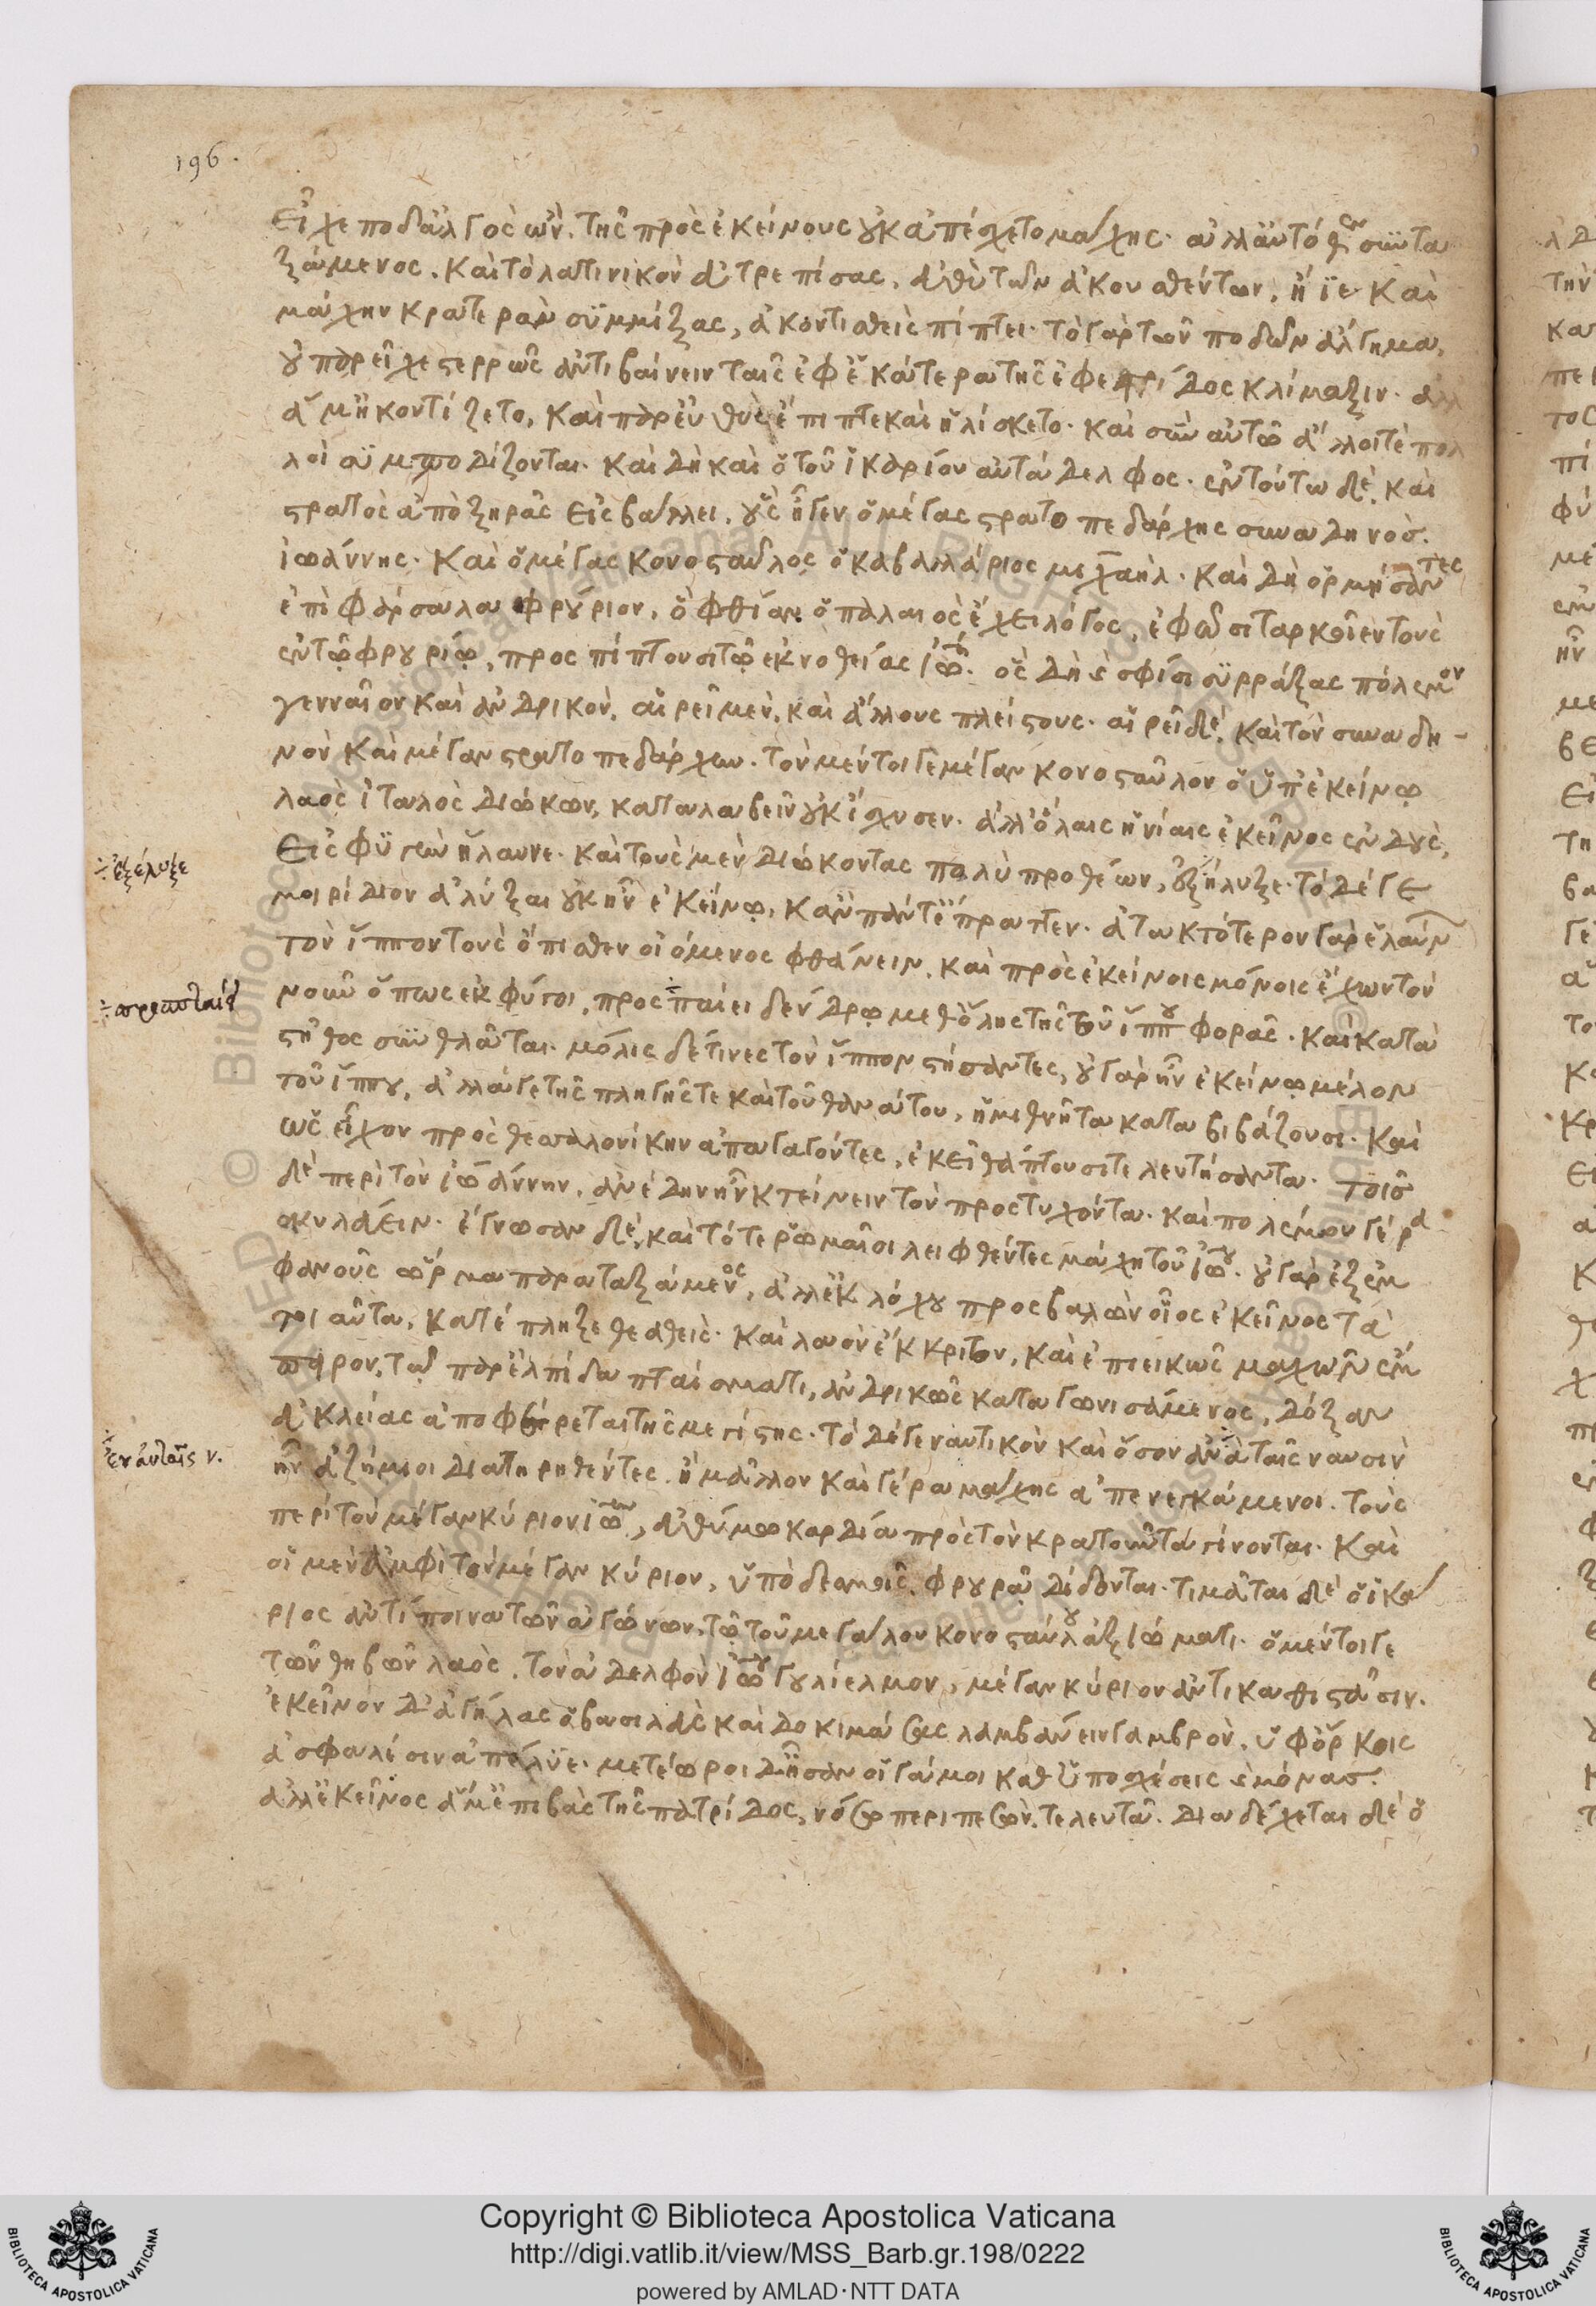 196.
εἶχε ποδαλγὸς ὤν. τῆς πρὸς ἐκείνους οὐκ ἀπέσχετο μάχης. ἀλλ' αὐτόθεν συντα
ξάμενος. καὶ τὸ λατινικὸν εὐτρεπίσας, εὐθὺ τῶν ἀκουσθέντων, ἤϊε. καὶ
μάχην κρατερὰν συμμίξας, ἀκοντισθεὶς πίπτει. τὸ γὰρ τῶν ποδῶν ἄλγημα,
οὐ παρεῖχε στερρῶς ἀντιβαίνειν ταῖς ἐφ' ἑκάτερα τῆς ἐφεστρίδος κλίμαξιν. ἀλλ
ἅμ' ἠκοντίζετο, καὶ παρευθὺς ἔπιπτε καὶ ἡλίσκετο. καὶ σὺν αὐτῷ ἄλλοι τὲ πολ
λοὶ συμποδίζονται. καὶ δὴ καὶ ὁ τοῦ ἰκαρίου αὐτάδελφος. ἐν τούτω δὲ, καὶ
στρατὸς ἀπὸ ξηρᾶς εἰσβάλλει, οὓς ἦγεν ὁ μέγας στρατοπεδάρχης συναδηνός.
ἰωάννης. καὶ ὁ μέγας κονοσταῦλος ὁ καβαλλάριος μιχαήλ. καὶ δὴ ὁρμήσαντες
ἐπὶ φάρσαλα φρούριον, ὃ φθίαν ὁ παλαιὸς ἔχει λόγος, ἐφ' ᾧ σιταρκοῖεν τοὺς
ἐν τῷ φρουρίῳ, προσπίπτουσι τῷ ἐκ νοθείας ἰωάννῃ. ὃς δὴ σφίσι συρράξας πόλεμον
γενναῖον καὶ ἀνδρικὸν, αἱρεῖ μὲν, καὶ ἄλλους πλείστους. αἱρεῖ δὲ, καὶ τὸν συναδη-
νὸν καὶ μέγαν στρατοπεδάρχην. τὸν μέντοι γε μέγαν κονοσταῦλον ὁ ὑπ' ἐκείνῳ
λαὸς ἰταλὸς διώκων, καταλαβεῖν οὐκ ἴσχυσεν. ἀλλ' ὅλαις ἡνίαις ἐκεῖνος ἐνδοὺς,
εἰς φυγὴν ἤλαυνε. καὶ τοὺς μὲν διώκοντας πολὺ προθέων, ἐξήλυξε. τὸ δέ γε
÷ ἐξέλυξε
μοιρίδιον ἀλύξαι οὐκ ἦν ἐκείνῳ, κἂν πάντ' ἔπραττεν. ἀτακτότερον γὰρ ἐλαύνων
τὸν ἵππον τοὺς ὄπισθεν οἰόμενος φθάνειν, καὶ πρὸς ἐκείνοις μόνοις ἔχων τὸν
νοῦν ὅπως ἐκφύγοι, προσπαίει δένδρῳ μεθ' ὅλης τῆς τοῦ ἵππου φορᾶς. καὶ κατὰ
στῆθος συνθλᾶται. μόλις δέ τινες τὸν ἵππον στήσαντες, οὐ γὰρ ἦν ἐκείνῳ μέλον
τοῦ ἵππου, ἀλλά γε τῆς πληγῆς τε καὶ τοῦ θανάτου, ἡμιθνῆτα καταβιβάζουσι. καὶ
ὡς εἶχον πρὸς θεσσαλονίκην ἀπαγαγόντες, ἐκεῖ θάπτουσι τελευτήσαντα. τοῖς
δὲ περὶ τὸν ἰωάννην, ἀνέδην ἦν κτείνειν τὸν προστυχόντα. καὶ πολέμου γέρα
σκυλεύειν. ἔγνωσαν δὲ, καὶ τότε ῥωμαῖοι λειφθέντες μάχῃ τοῦ ἰωάννου. οὐ γὰρ ἐξ ἐμ
φανοῦς ὥρμα παραταξάμενος, ἀλλ' ἐκ λόχου προσβαλὼν οἷος ἐκεῖνος τὰ
τοιαῦτα, κατέπληξε θεαθείς. καὶ λαὸν ἔκκριτον, καὶ ἐπιεικῶς μαχῶν ἔμ
πειρον, τῷ παρ' ἐλπίδα πταίσματι, ἀνδρικῶς καταγωνισάμενος, δόξαν
εὐκλείας ἀποφέρεται τῆς μεγίστης. τὸ δέ γε ναυτικὸν καὶ ὅσον ἐν ταῖς ναυσὶν
÷ ἐν αὐταῖς ν.
ἦν ἀζήμιοι διατηρηθέντες, ἢ μᾶλλον καὶ γέρα μάχης ἀπενεγκάμενοι. τοὺς
περὶ τὸν μέγαν κύριον ἰωάννην, εὐθύμῳ καρδίᾳ πρὸς τὸν κρατοῦντα γίνονται. καὶ
οἱ μὲν ἀμφὶ τὸν μέγαν κύριον, ὑπὸ δεσμοῖς, φρουρᾷ δίδονται. τιμᾶται δὲ ὁ ἰκά
ριος ἀντίποινα τῶν ἀγώνων, τῷ τοῦ μεγάλου κονοσταύλου ἀξιώματι. ὁ μέντοι γε
τῶν θηβῶν λαὸς, τὸν ἀδελφὸν ἰωάννου γουλίελμον, μέγαν κύριον ἀντικαθιστᾶσιν.
ἐκεῖνον δ' ἀγήλας ὁ βασιλεὺς καὶ δοκιμάσας λαμβάνειν γαμβρὸν, ὑφ' ὅρκοις
ἀσφαλέσιν ἀπέλυε. μετέωροι δ' ἦσαν οἱ γάμοι καθ' ὑποσχέσεις μόνας.
ἀλλ' ἐκεῖνος ἅμ' ἐπιβὰς τῆς πατρίδος, νόσῳ περιπεσὼν, τελευτᾷ. διαδέχεται δὲ ὁ
Copyright © Biblioteca Apostolica Vaticana
http://digi.vatlib.it/view/MSS_Barb.gr.198/0222
powered by AMLAD·NTT DATA
BIBLIOTECA APOSTOLICA VATICANA
BIBLIOTECA APOSTOLICA VATICANA